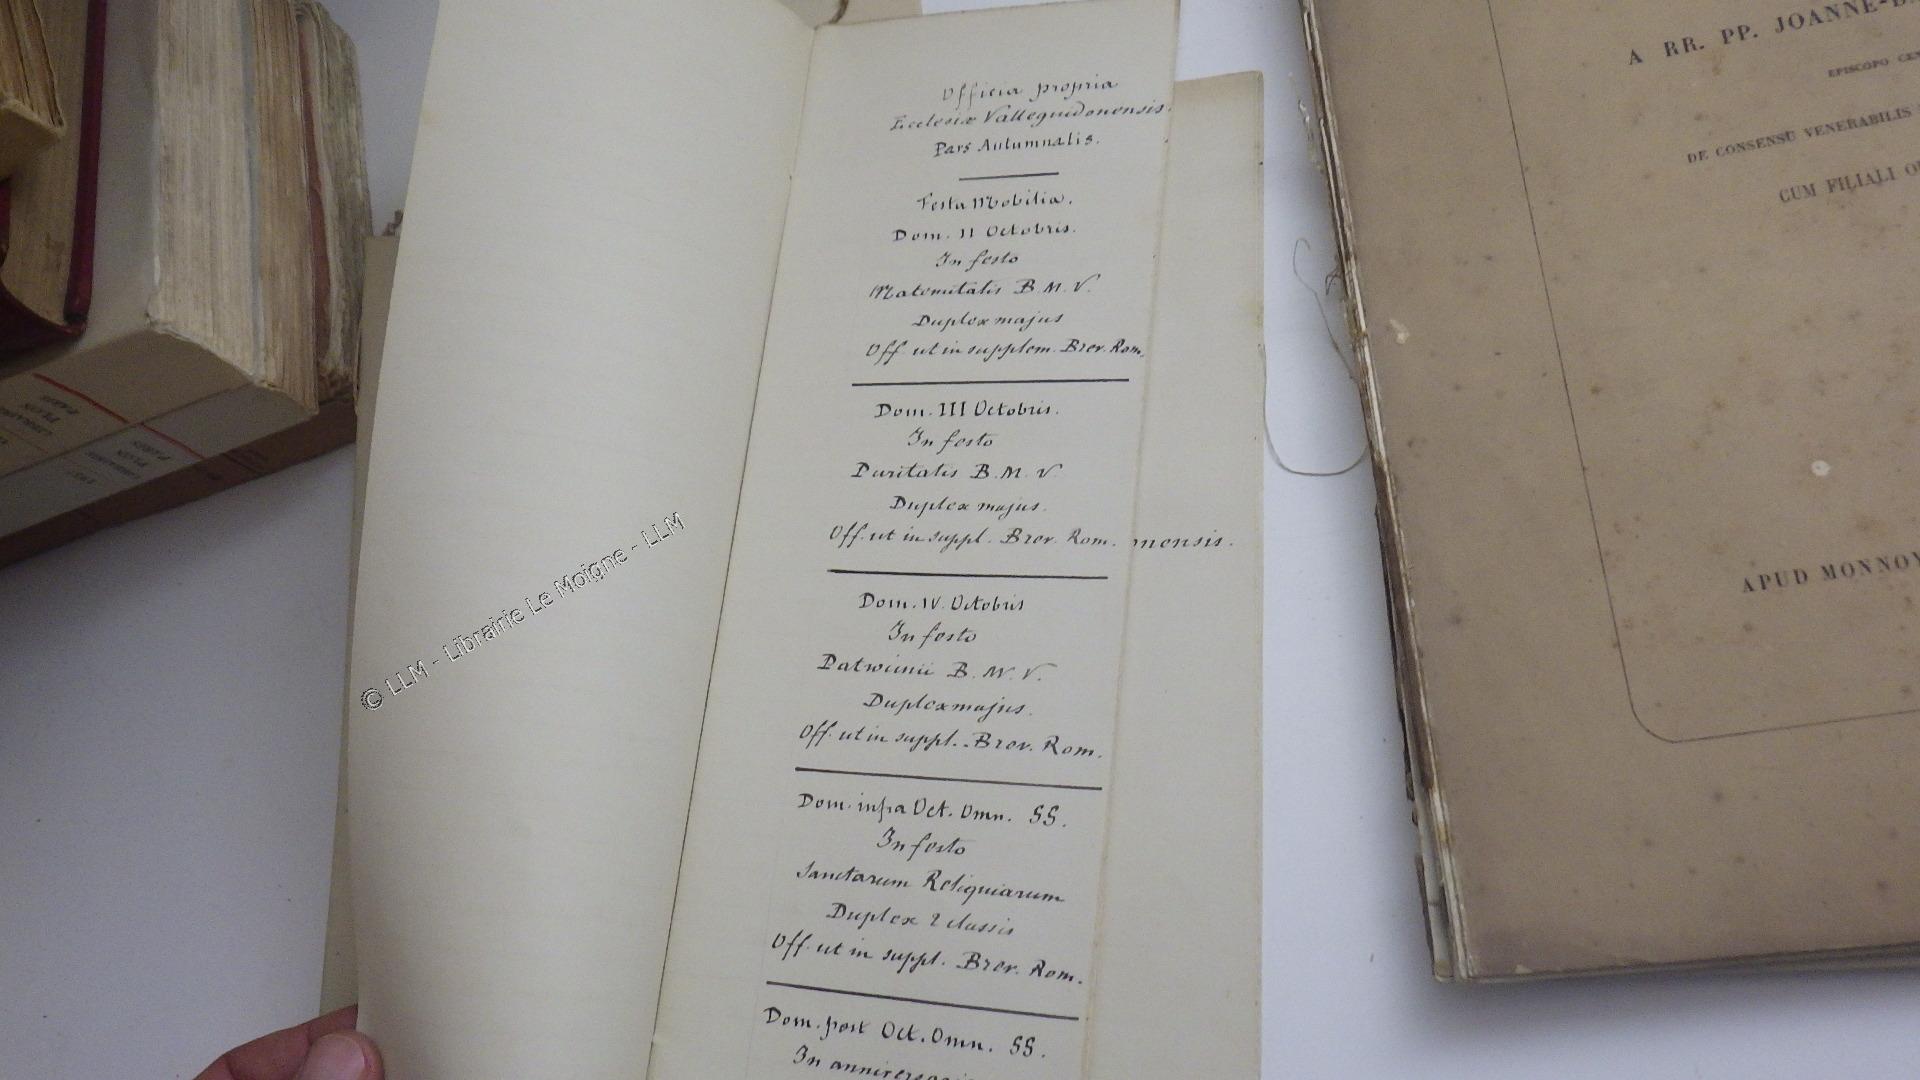 Officia propria
Ecclesiæ Valleguidonensis.
Pars Autumnalis.
Festa Mobilia.
Dom. II Octobris.
In festo
Maternitatis B. M. V.
Duplex majus
Off. ut in supplem. Brev. Rom.
Dom. III Octobris.
In festo
Puritatis B. M. V.
Duplex majus.
Off. ut in suppl. Brev. Rom.
nensis.
Dom. IV. Octobris
In festo
Patrocinii B. M. V.
Duplex majus.
Off. ut in suppl. Brev. Rom.
Dom. infra Oct. Omn. SS.
In festo
Sanctarum Reliquiarum
Duplex 2 classis
Off. ut in suppl. Brev. Rom.
Dom. post Oct. Omn. SS.
In
© LLM - Librairie Le Moigne - LLM
A RR. PP. JOANNE-BA
EPISCOPO CEN
DE CONSENSU VENERABILIS
CUM FILIALI
APUD MONNOY
LIBRAIRIE
PLON
PARIS
LIBRAIRIE
PLON
PARIS